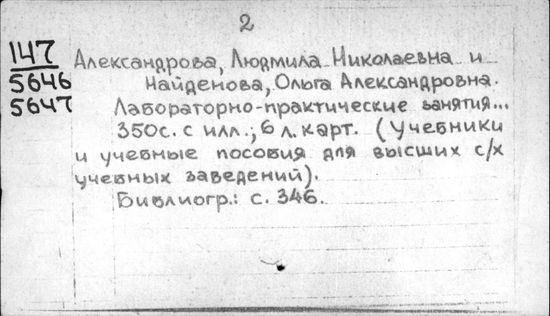 2
147
5646
5647
Александрова, Людмила Николаевна и
Найденова, Ольга Александровна.
Лабораторно-практические занятия...
350с. с илл.; 6 л. карт. (Учебники
и учебные пособия для высших с/х
учебных заведений).
Библиогр.: с. 346.